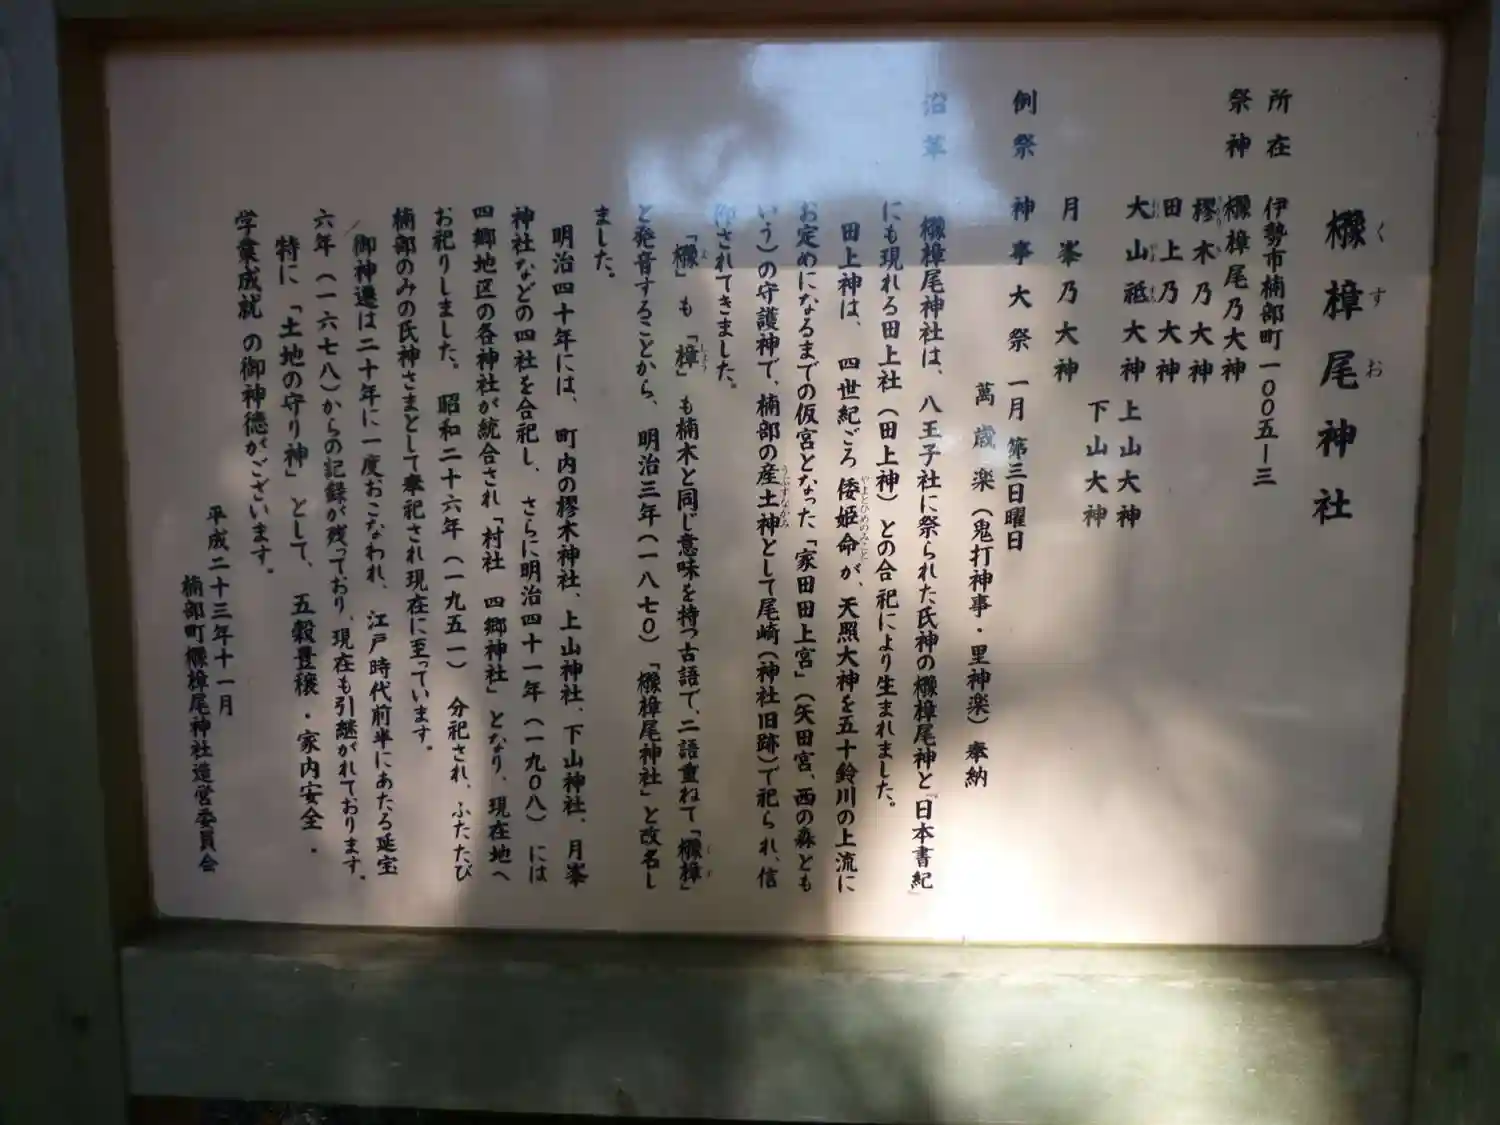 櫲樟尾神社
くすお
所在 伊勢市楠部町一〇〇五ー三
祭神 櫲樟尾乃大神
樛木乃大神
田上乃大神
大山祗大神 上山大神
下山大神
月峯乃大神
例祭 神事大祭 一月 第三日曜日
萬歳楽（鬼打神事・里神楽）奉納
沿革
櫲樟尾神社は、八王子社に祭られた氏神の櫲樟尾神と『日本書紀』
にも現れる田上社（田上神）との合祀により生まれました。
田上神は、四世紀ごろ倭姫命が、天照大神を五十鈴川の上流に
やまとひめのみこと
お定めになるまでの仮宮となった「家田田上宮」（矢田宮、西の森とも
いう）の守護神で、楠部の産土神として尾崎（神社旧跡）で祀られ、信
うぶすながみ
仰されてきました。
「櫲」も「樟」も楠木と同じ意味を持つ古語で、二語重ねて「櫲樟」
よ しょう くす
と発音することから、明治三年（一八七〇）「櫲樟尾神社」と改名し
ました。
明治四十年には、町内の樛木神社、上山神社、下山神社、月峯
神社などの四社を合祀し、さらに明治四十一年（一九〇八）には
四郷地区の各神社が統合され「村社 四郷神社」となり、現在地へ
お祀りしました。昭和二十六年（一九五一）分祀され、ふたたび
楠部のみの氏神さまとして奉祀され現在に至っています。
御神遷は二十年に一度おこなわれ、江戸時代前半にあたる延宝
六年（一六七八）からの記録が残っており、現在も引継がれております。
特に「土地の守り神」として、五穀豊穣・家内安全・
学業成就の御神徳がございます。
平成二十三年十一月
楠部町櫲樟尾神社造営委員会